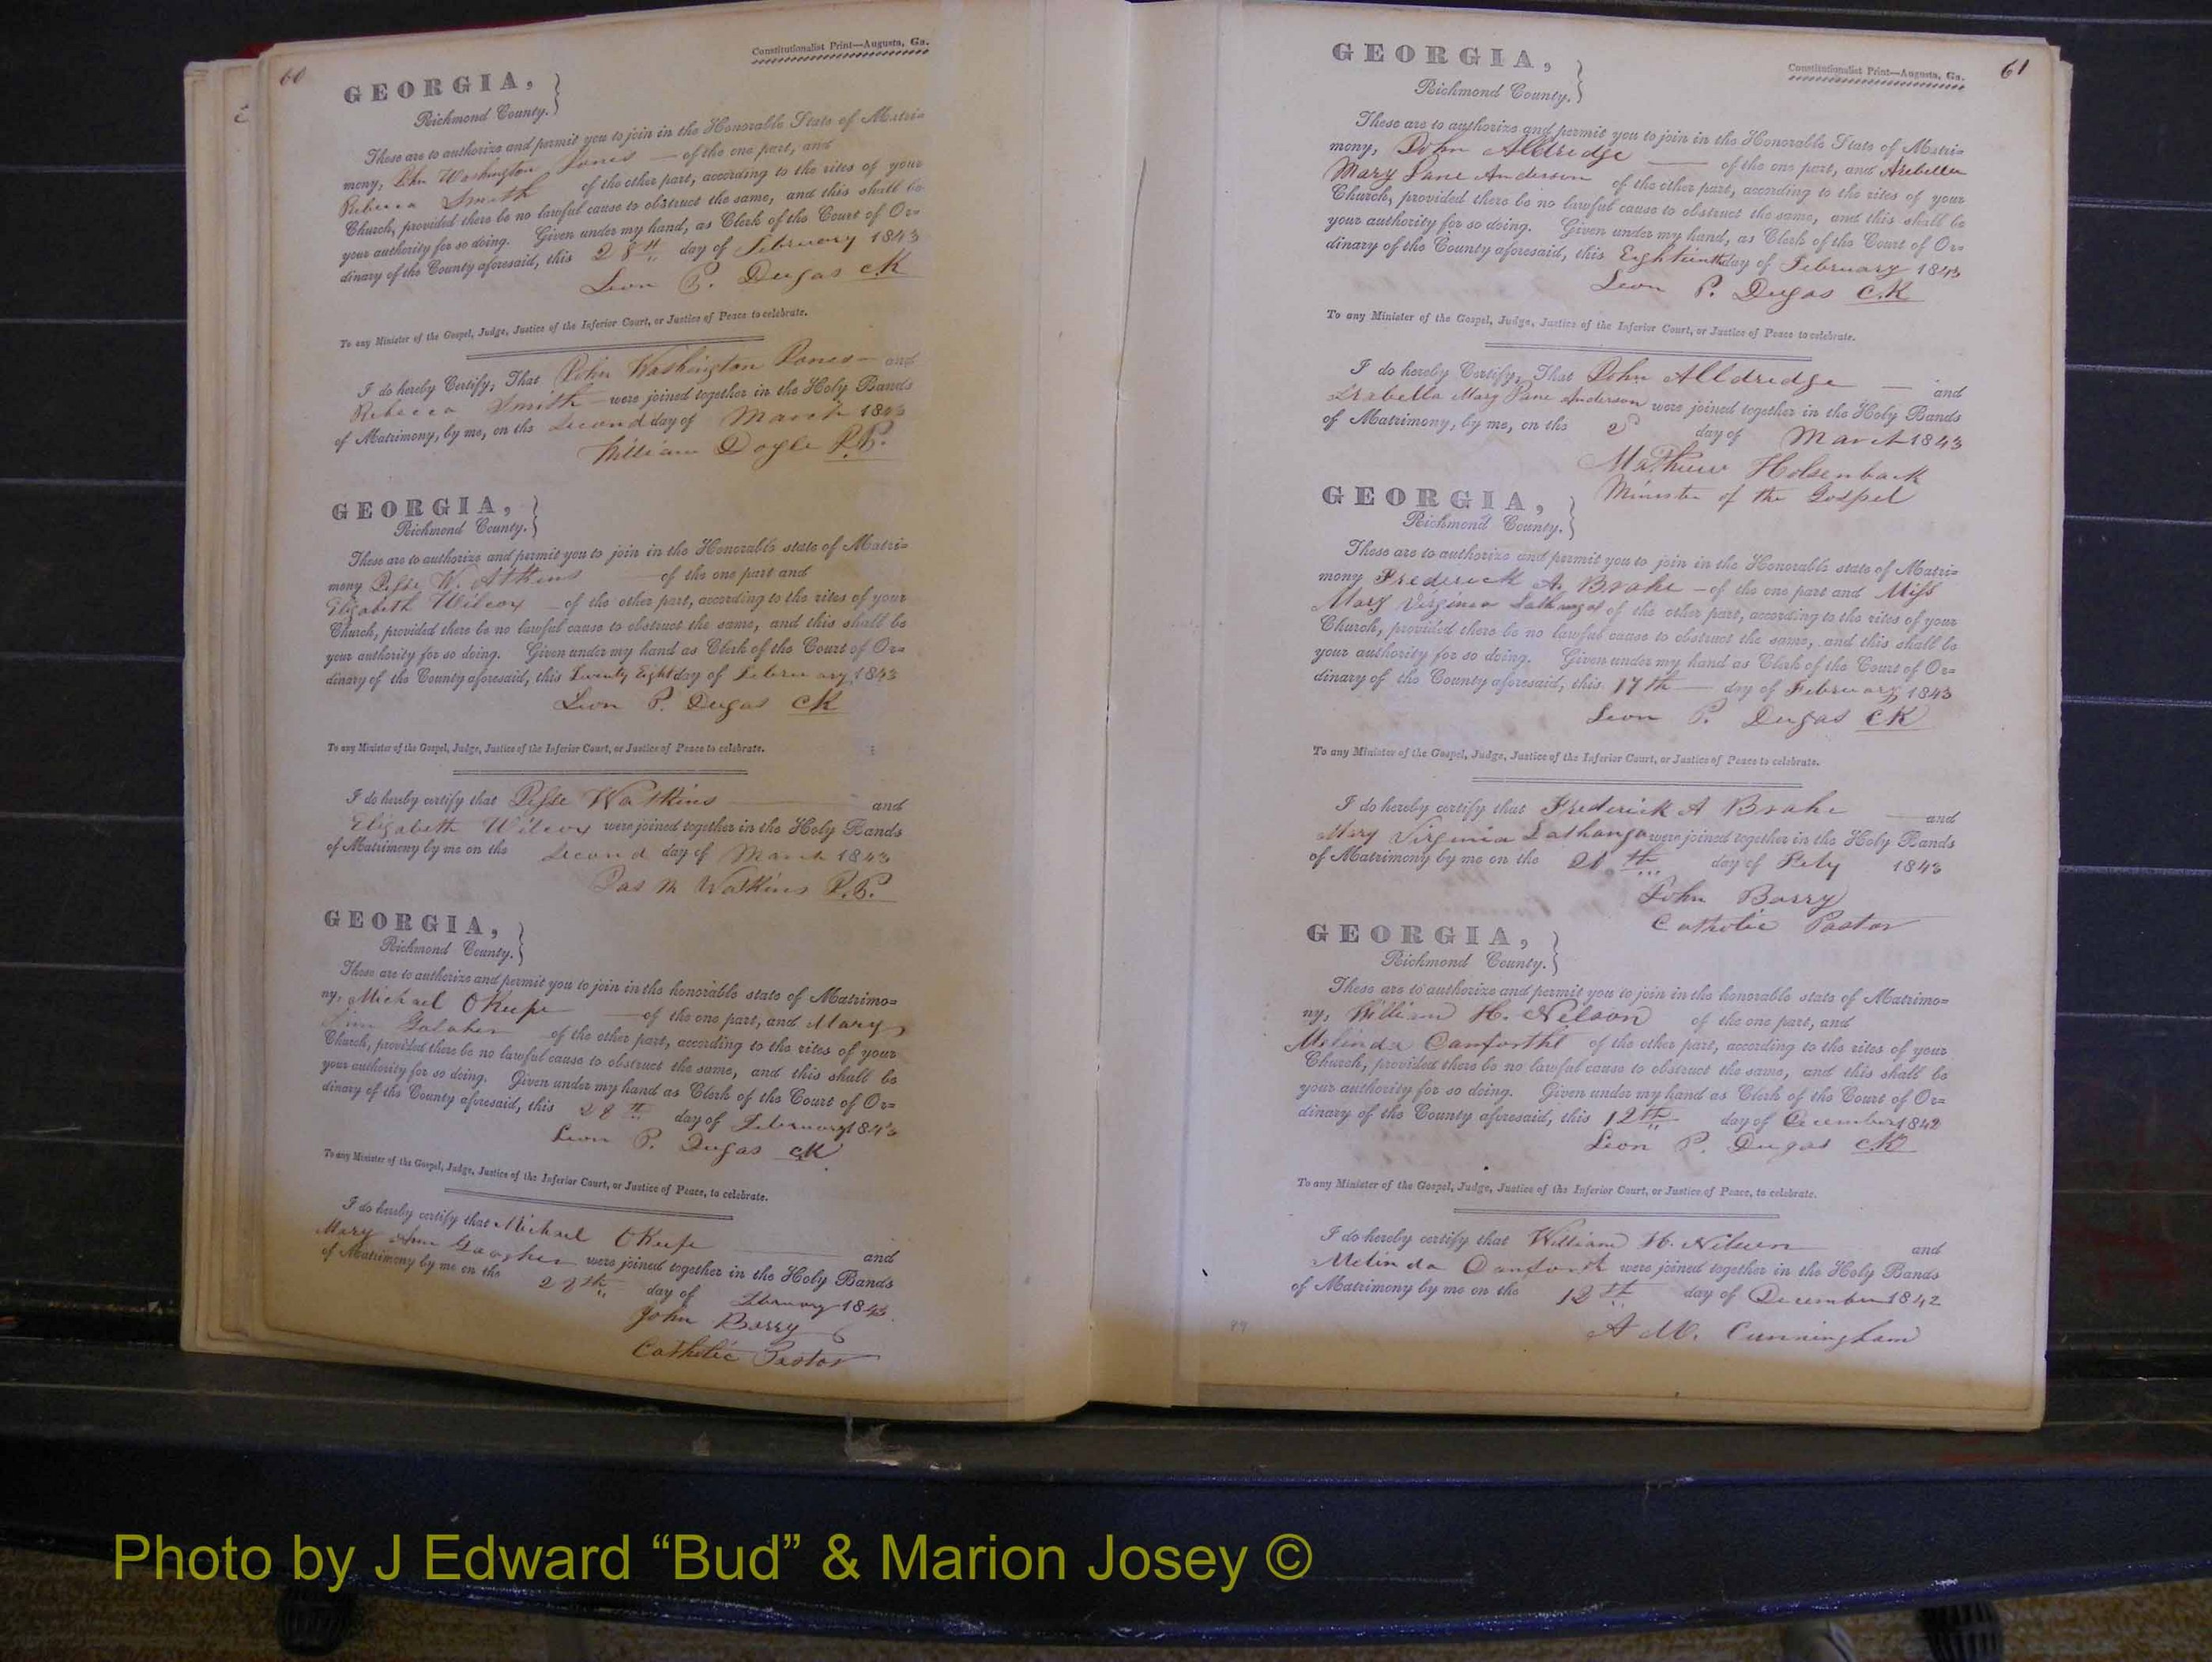 60
Constitutionalist Print—Augusta, Ga.
GEORGIA,
Richmond County.
These are to authorize and permit you to join in the Honorable State of Matri=
mony, John Washington Jones — of the one part, and
Rebecca Smith of the other part, according to the rites of your
Church, provided there be no lawful cause to obstruct the same, and this shall be
your authority for so doing. Given under my hand, as Clerk of the Court of Or=
dinary of the County aforesaid, this 28th day of February 1843
Leon P. Dugas CK
To any Minister of the Gospel, Judge, Justice of the Inferior Court, or Justice of Peace to celebrate.
I do hereby Certify, That John Washington Jones — and
Rebecca Smith — were joined together in the Holy Bands
of Matrimony, by me, on the Second day of March 1843
William Doyle J.P.
GEORGIA,
Richmond County.
These are to authorize and permit you to join in the Honorable state of Matri=
mony Jesse W. Atkins — of the one part and
Elizabeth Wilcox — of the other part, according to the rites of your
Church, provided there be no lawful cause to obstruct the same, and this shall be
your authority for so doing. Given under my hand as Clerk of the Court of Or=
dinary of the County aforesaid, this Twenty Eight day of February 1843
Leon P. Dugas CK
To any Minister of the Gospel, Judge, Justice of the Inferior Court, or Justice of Peace to celebrate.
I do hereby certify that Jesse Watkins — and
Elizabeth Wilcox were joined together in the Holy Bands
of Matrimony by me on the Second day of March 1843
Jas M Watkins J.P.
GEORGIA,
Richmond County.
These are to authorize and permit you to join in the honorable state of Matrimo=
ny, Michael OKeefe — of the one part, and Mary
of the other part, according to the rites of your
Church, provided there be no lawful cause to obstruct the same, and this shall be
your authority for so doing. Given under my hand as Clerk of the Court of Or=
dinary of the County aforesaid, this 28th day of February 1843
Leon P. Dugas CK
To any Minister of the Gospel, Judge, Justice of the Inferior Court, or Justice of Peace, to celebrate.
I do hereby certify that Michael OKeefe and
Mary Ann were joined together in the Holy Bands
of Matrimony by me on the 28th day of February 1843
John Barry
Catholic Pastor
61
Constitutionalist Print—Augusta, Ga.
GEORGIA,
Richmond County.
These are to authorize and permit you to join in the Honorable State of Matri=
mony, John Alldredge — of the one part, and Arebella
Mary Jane Anderson of the other part, according to the rites of your
Church, provided there be no lawful cause to obstruct the same, and this shall be
your authority for so doing. Given under my hand, as Clerk of the Court of Or=
dinary of the County aforesaid, this Eighteenth day of February 1843
Leon P. Dugas C.K
To any Minister of the Gospel, Judge, Justice of the Inferior Court, or Justice of Peace to celebrate.
I do hereby Certify, That John Alldredge — and
Mary Jane Anderson were joined together in the Holy Bands
of Matrimony, by me, on the 2 day of March 1843
Mathew Holsenback
Minister of the Gospel
GEORGIA,
Richmond County.
These are to authorize and permit you to join in the Honorable state of Matri=
mony Frederick A. Brahe — of the one part and Miss
Mary Virginia of the other part, according to the rites of your
Church, provided there be no lawful cause to obstruct the same, and this shall be
your authority for so doing. Given under my hand as Clerk of the Court of Or=
dinary of the County aforesaid, this 17th — day of February 1843
Leon P. Dugas CK
To any Minister of the Gospel, Judge, Justice of the Inferior Court, or Justice of Peace to celebrate.
I do hereby certify that Frederick A Brahe — and
Mary Virginia were joined together in the Holy Bands
of Matrimony by me on the 20th day of 1843
John Barry
Catholic Pastor
GEORGIA,
Richmond County.
These are to authorize and permit you to join in the honorable state of Matrimo=
ny, William H. Nelson of the one part, and
Melinda Danforth of the other part, according to the rites of your
Church, provided there be no lawful cause to obstruct the same, and this shall be
your authority for so doing. Given under my hand as Clerk of the Court of Or=
dinary of the County aforesaid, this 12th day of December 1842
Leon P. Dugas CK
To any Minister of the Gospel, Judge, Justice of the Inferior Court, or Justice of Peace, to celebrate.
I do hereby certify that William H. Nelson and
Melinda Danforth were joined together in the Holy Bands
of Matrimony by me on the 12th day of December 1842
Cunningham
Photo by J Edward “Bud” & Marion Josey ©